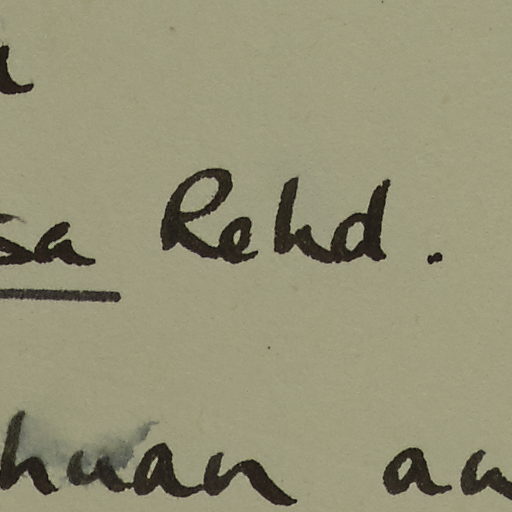 sa Rehd.
huan an